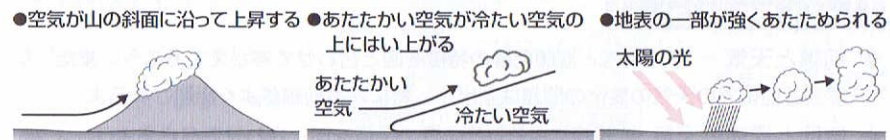 ●空気が山の斜面に沿って上昇する
●あたたかい空気が冷たい空気の
上にはい上がる
あたたかい
空気
冷たい空気
●地表の一部が強くあたためられる
太陽の光